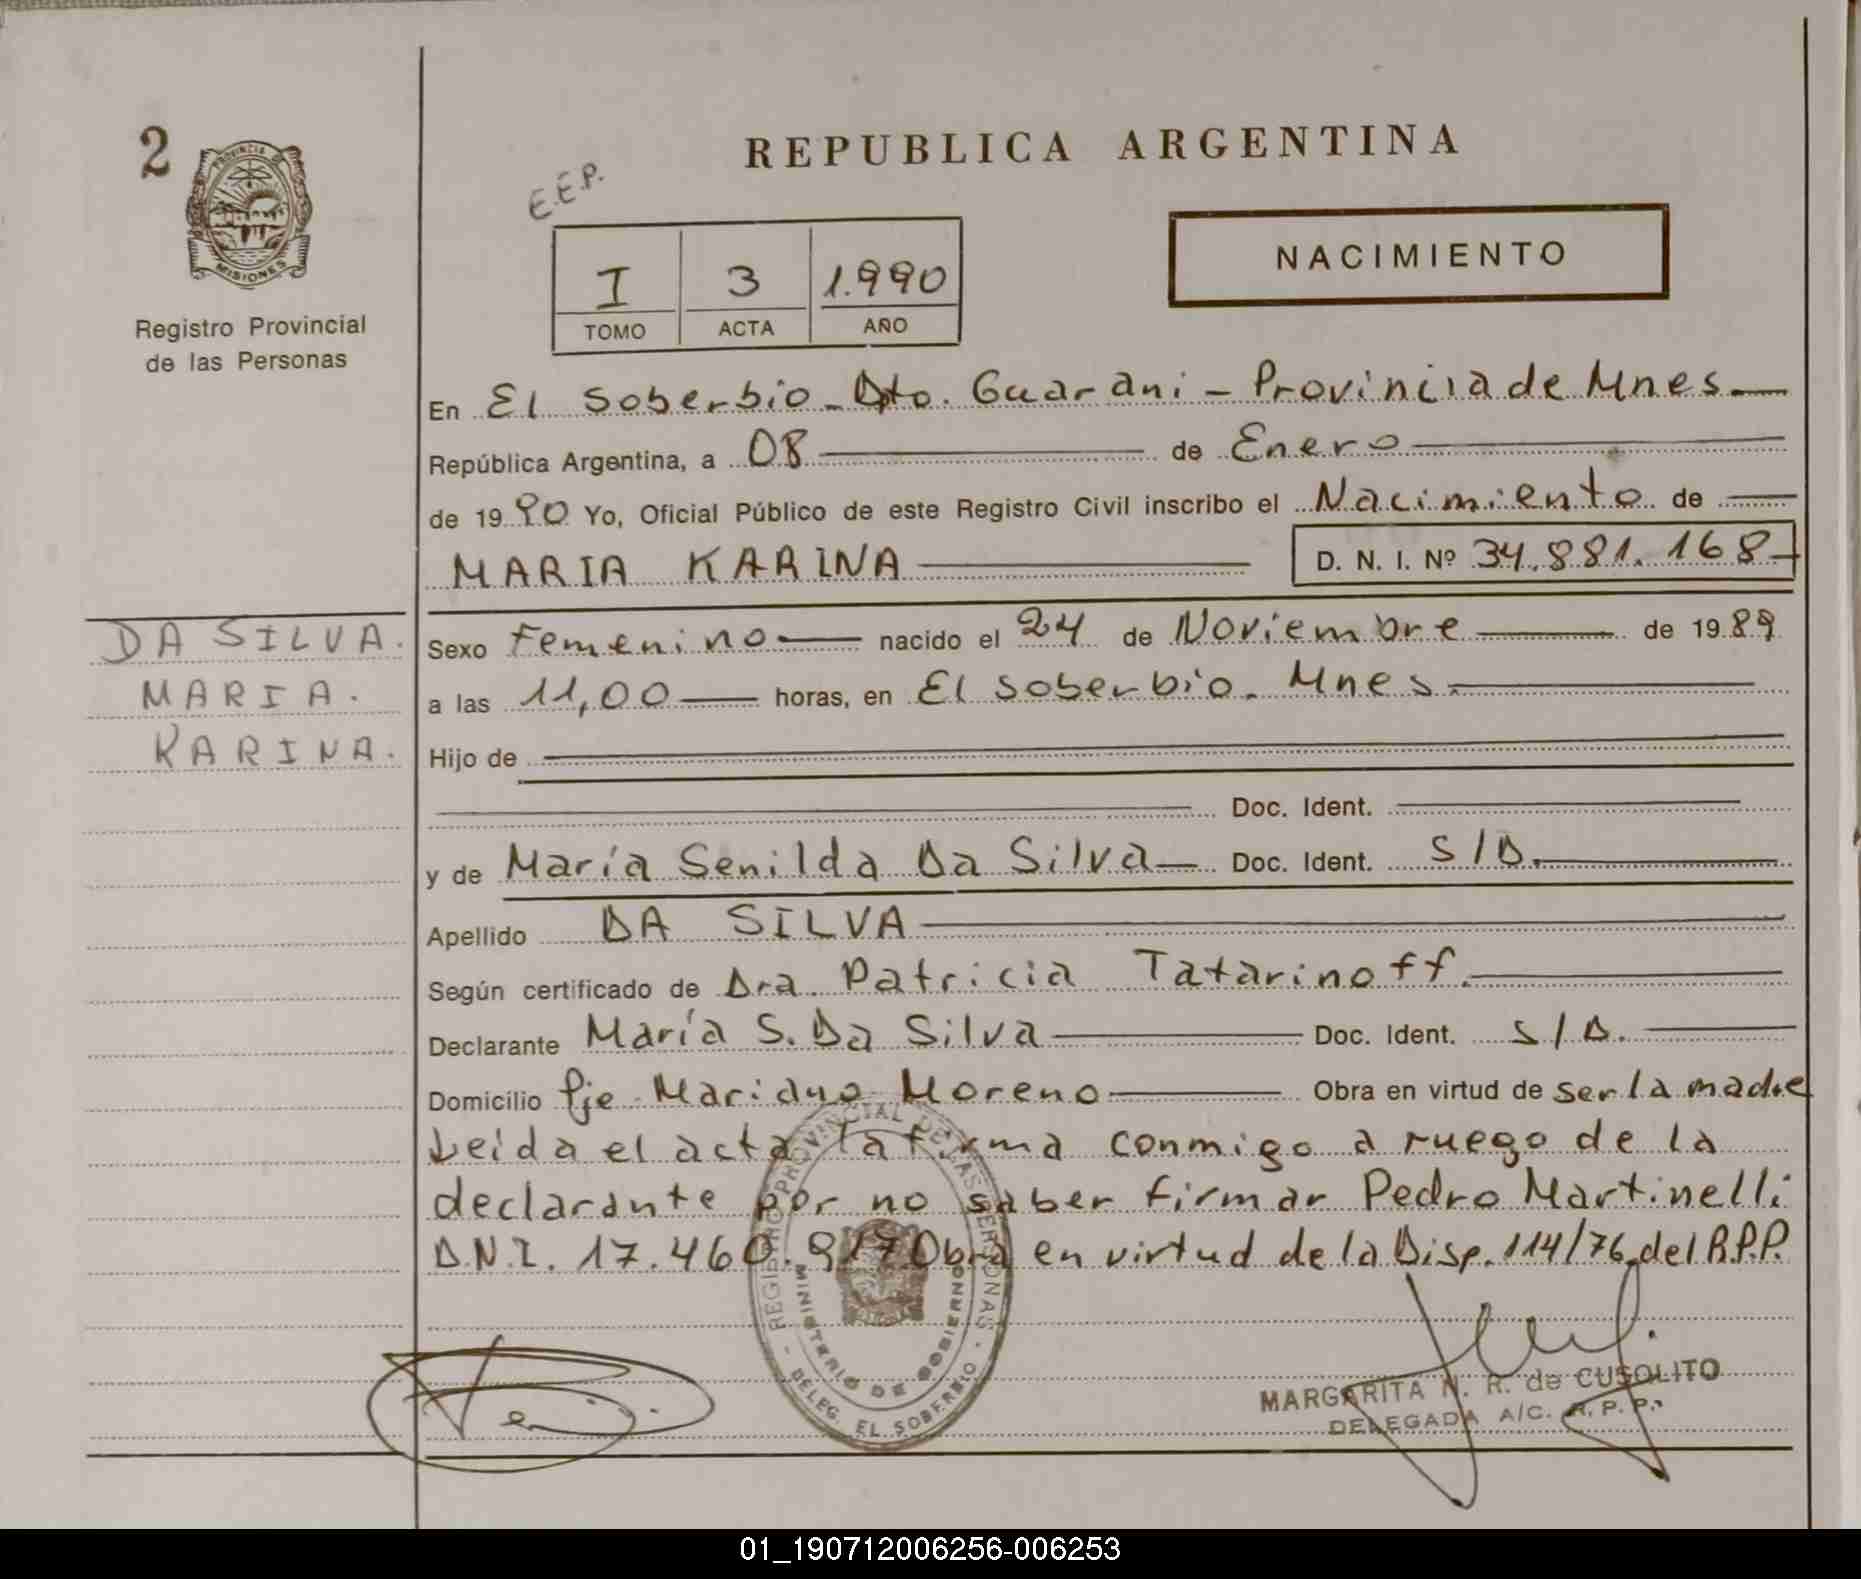 2
PROVINCIA DE
MISIONES
Registro Provincial
de las Personas
REPUBLICA ARGENTINA
E.E.P.
I 3 1.990
TOMO ACTA AÑO
NACIMIENTO
En El Soberbio - Dto. Guarani - Provincia de Mnes
República Argentina, a 08 de Enero
de 1990 Yo, Oficial Público de este Registro Civil inscribo el Nacimiento de
MARIA KARINA D. N. I. Nº 34.881.168
DA SILVA.
MARIA.
KARINA.
Sexo Femenino nacido el 24 de Noviembre de 1989
a las 11,00 horas, en El Soberbio. Mnes.
Hijo de
Doc. Ident.
y de María Senilda Da Silva Doc. Ident. S/D.
Apellido DA SILVA
Según certificado de Dra. Patricia Tatarinoff.
Declarante María S. Da Silva Doc. Ident. S/D.
Domicilio Pje Mariano Moreno Obra en virtud de ser la madre
Leída el acta la firma conmigo a ruego de la
declarante por no saber firmar Pedro Martinelli
D.N.I. 17.460.917 Obra en virtud de la Disp. 114/76 del R.P.P.
REGISTRO PROVINCIAL DE LAS PERSONAS
MINISTERIO DE GOBIERNO
DELEG. EL SOBERBIO
MARGARITA N. R. de CUSOLITO
DELEGADA A/C. R. P. P.
01_190712006256-006253